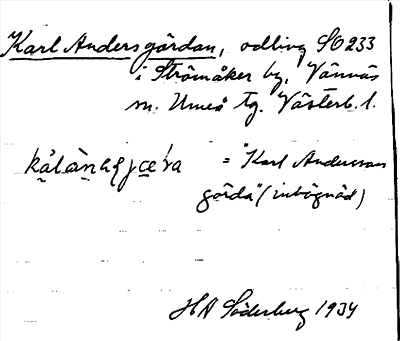 Karl Andersgårdan, odling SO 233
i Strömåker by, Vännäs
sn. Umeå tg. Västerb. l.
= "Karl Anderssan
gårda" (inbögnäd)
HA Söderberg 1934